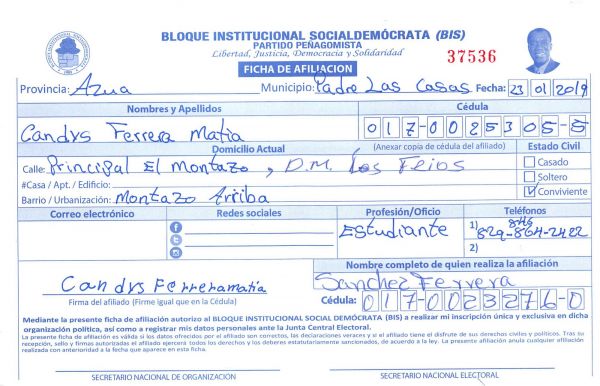 BLOQUE INSTITUCIONAL SOCIALDEMÓCRATA (BIS)
PARTIDO PEÑAGOMISTA
Libertad, Justicia, Democracia y Solidaridad
37536
FICHA DE AFILIACION
Provincia: Azua Municipio: Padre Las Casas Fecha: 23 01 2019
Nombres y Apellidos Cédula
Candys Ferrera Matia 017-0025305-5
Domicilio Actual (Anexar copia de cédula del afiliado) Estado Civil
Calle: Principal El Montazo, D.M. Las Casado
#Casa / Apt. / Edificio: Soltero
Barrio / Urbanización: Montazo Arriba Conviviente
Correo electrónico Redes sociales Profesión/Oficio Teléfonos
Estudiante 1) 829-864-2422
846
2)
Nombre completo de quien realiza la afiliación
Candys Ferreramatia Sanchez Ferrera
Firma del afiliado (Firme igual que en la Cédula) Cédula: 017-0023276-0
Mediante la presente ficha de afiliación autorizo al BLOQUE INSTITUCIONAL SOCIAL DEMÓCRATA (BIS) a realizar mi inscripción única y exclusiva en dicha
organización política, así como a registrar mis datos personales ante la Junta Central Electoral.
La presente ficha de afiliación es válida si los datos ofrecidos por el afiliado son correctos, las declaraciones veraces y si el afiliado tiene el disfrute de sus derechos civiles y políticos. Tras su
recepción, sello y firmas autorizadas el afiliado ejercerá todos los derechos y los deberes estatutariamente sancionados, de acuerdo a la ley. La presente afiliación anula cualquier afiliación
realizada con anterioridad a la fecha que aparece en esta ficha.
SECRETARIO NACIONAL DE ORGANIZACIÓN SECRETARIO NACIONAL ELECTORAL